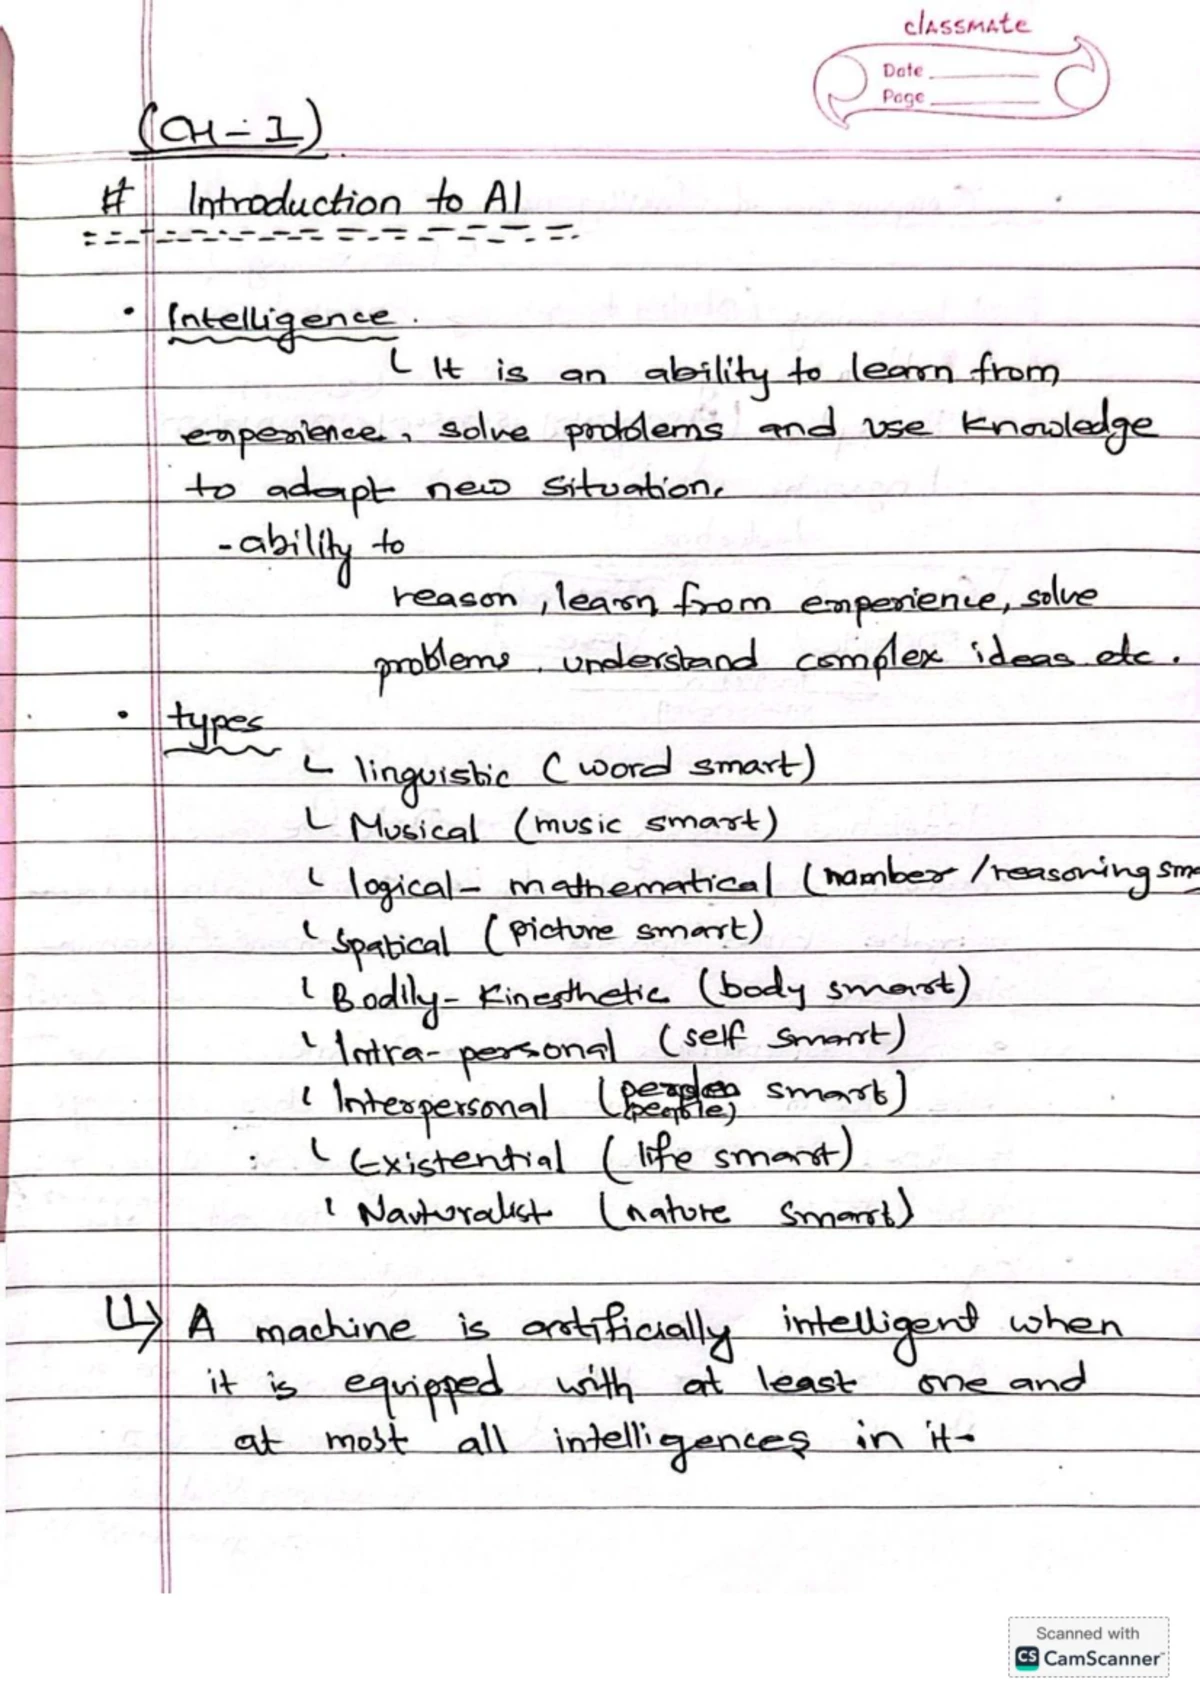 classmate
Date
Page
(CH-1)
# Introduction to AI
• Intelligence.
It is an ability to learn from
experience, solve problems and use knowledge
to adapt new situation.
- ability to
reason, learn from experience, solve
problems, understand complex ideas etc.
• types
linguistic (word smart)
Musical (music smart)
logical- mathematical (number/reasoning sma
Spatical (picture smart)
Bodily- Kinesthetic (body smart)
Intra-personal (self smart)
Interpersonal ( smart)
(people)
Existential (life smart)
Nauturalist (nature smart)
A machine is artificially intelligent when
it is equipped with at least one and
at most all intelligences in it.
Scanned with
CS CamScanner